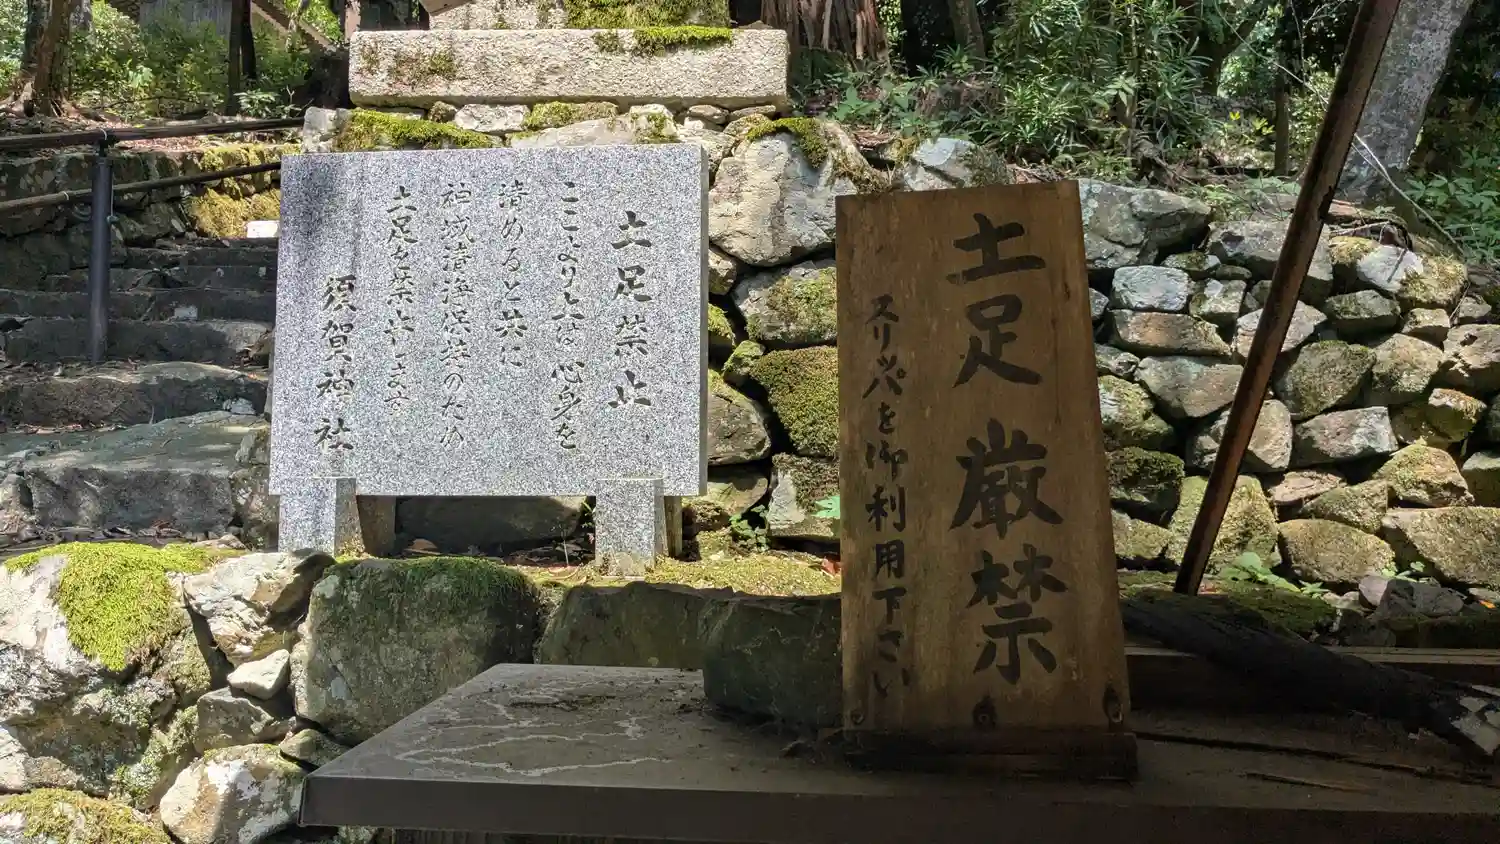 土足禁止
ここより上は心身を
清めると共に
神域清浄保持のため
土足を禁止します
須賀神社
土足厳禁
スリッパを御利用下さい